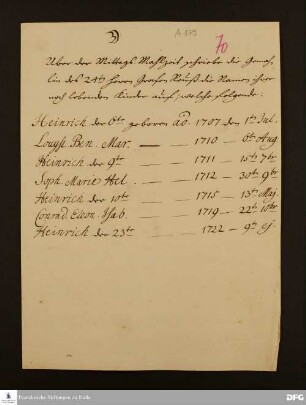 A 175
70
Uber der Mittags Mahlzeit schriebe die Gemah-
lin des 24ten Herrn Grafen Reuß die Namen ihrer
noch lebenden Kinder auf, welche folgende:
Heinrich der 6te geboren aõ. 1707 den 1ten Jul.
Louyse Ben. Mar. — 1710 — 6ten Aug
Heinrich der 9te — 1711 — 15ten 7br
Soph. Marie Hel. — 1712 — 30ten 9br
Heinrich der 10te — 1715 — 13ten Maj.
Conrad. Eleon. Isab. — 1719 — 22ten 10br
Heinrich der 23te — 1722 — 9ten ej.
Franckesche Stiftungen zu Halle
DFG